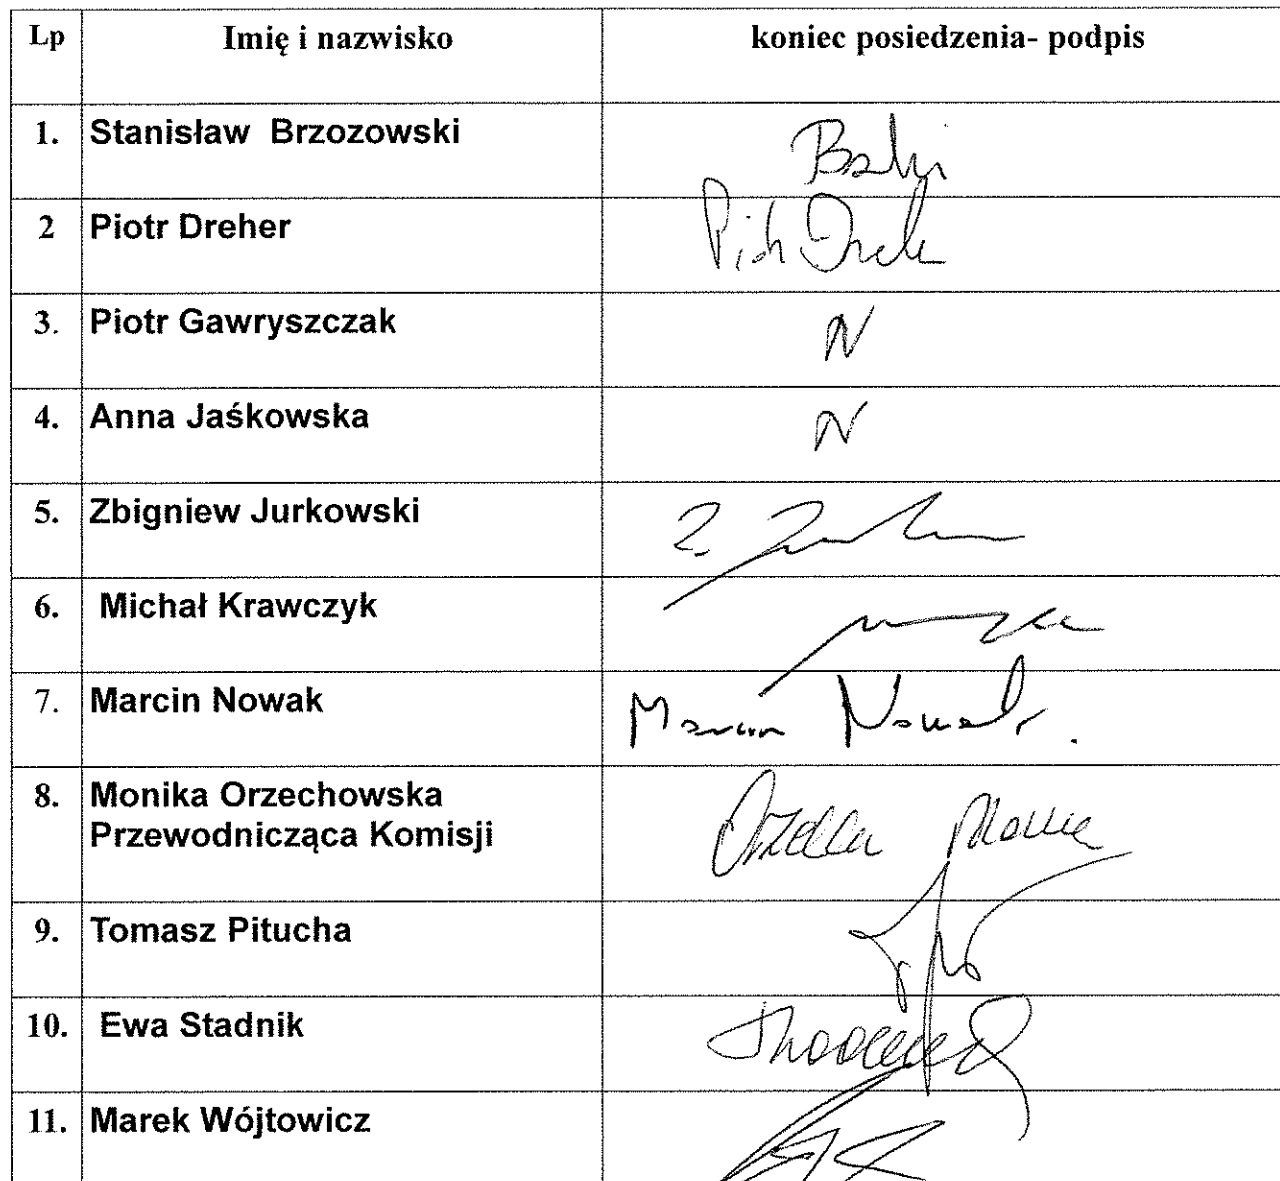 Lp Imię i nazwisko koniec posiedzenia- podpis
1. Stanisław Brzozowski
2 Piotr Dreher
3. Piotr Gawryszczak N
4. Anna Jaśkowska N
5. Zbigniew Jurkowski
6. Michał Krawczyk
7. Marcin Nowak Marcin Nowak.
8. Monika Orzechowska
Przewodnicząca Komisji
9. Tomasz Pitucha
10. Ewa Stadnik
11. Marek Wójtowicz